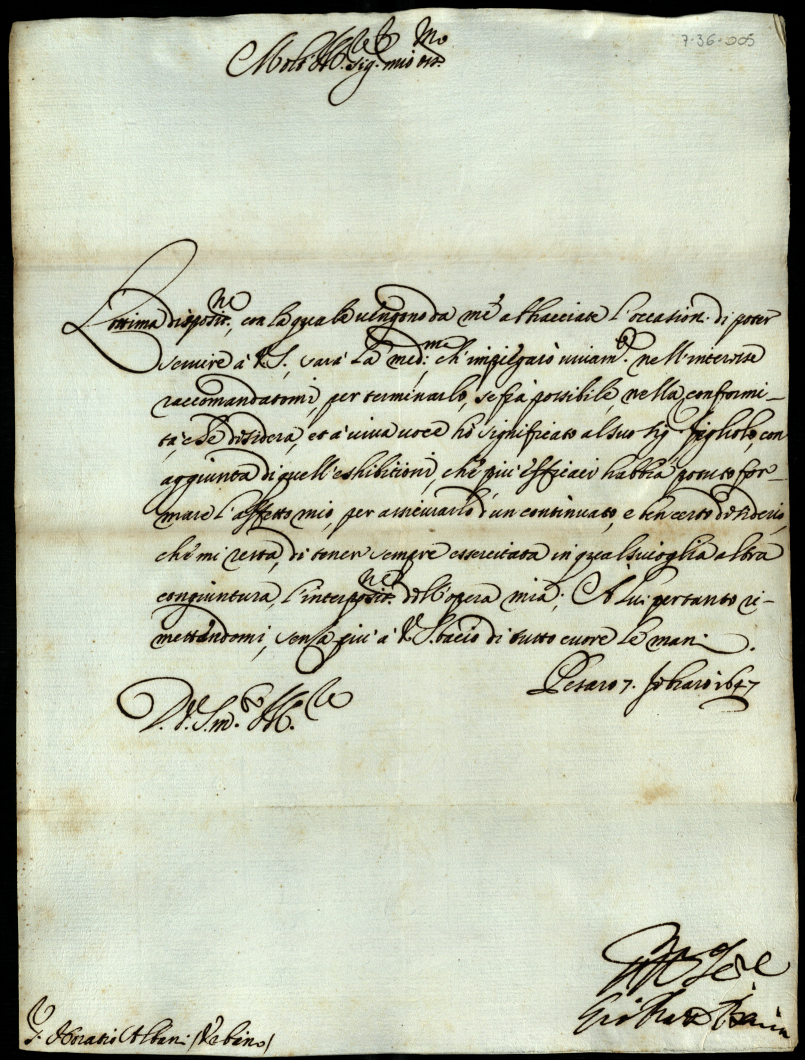 7-36-005
Molt' Ill.re Sig. mio oss.mo
L'ottima disposit.ne, con la quale vengono da mè abbracciate l'occasioni di poter
servire à V.S., sarà la med.ma ch'impiegarò vivam.te nell'interesse
raccomandatomi, per terminarlo, se fia possibile, nella conformi-
tà, che desidera, et à viva voce hò significato al suo sig. figliolo, con
aggiunta di quell'eshibitioni, che più efficaci habbia potuto for-
mare l'affetto mio, per assicurarlo d'un continuato, e ben certo desiderio,
che mi resta, di tener sempre essercitata in qualsivoglia altra
congiuntura, l'interposit.ne dell'opera mia; A lui pertanto ri-
mettendomi, senza più à V.S. bacio di tutto cuore le mani.
Pesaro 7. febraro 1647
D. V.S. m.to Ill.re
S.r Horatio Albani (Urbino)